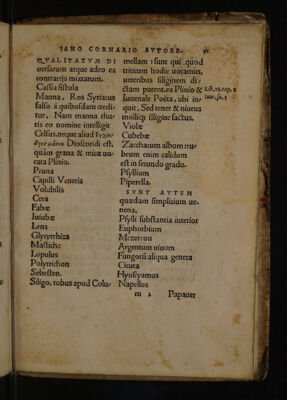 IANO CORNARIO AVTORE.
QVALITATVM DI
uersarum atque adeo ex
contrarijs mixtarum.
Cassia fistula
Manna, Ros Syriacus
falso à quibusdam credi/
tur, Nam manna thu-
ris eo nomine intelligit
Celsus. neque aliud
Dioscoridi est,
quàm grana & micæ uo-
cata Plinio.
Pruna
Capilli Veneris
Volubilis
Cera
Fabæ
Iuiubæ
Lens
Glycyrrhiza
Mastiche
Lupulus
Polytrichon
Sebesten.
Siligo, robus apud Colu/
mellam: sunt qui quod
triticum hodie uocamus,
uertentibus siliginem di/
ctam putent. ex Plinio &
Iuuenale Poëta, ubi in-
quit, Sed tener & niueus
mollicq; siligine factus.
Violæ
Cubebæ
Zaccharum album: ru/
beum enim calidum
est in secundo gradu.
Psyllium
Piperella.
SVNT AVTEM
quædam simplicium ue-
nena.
Psylli substantia interior
Euphorbium
Mezereon
Argentum uiuum
Fungorũ aliqua genera
Cicuta
Hyoscyamus
Napellus
m 2 Papauer
Lib. 18. cap. 8